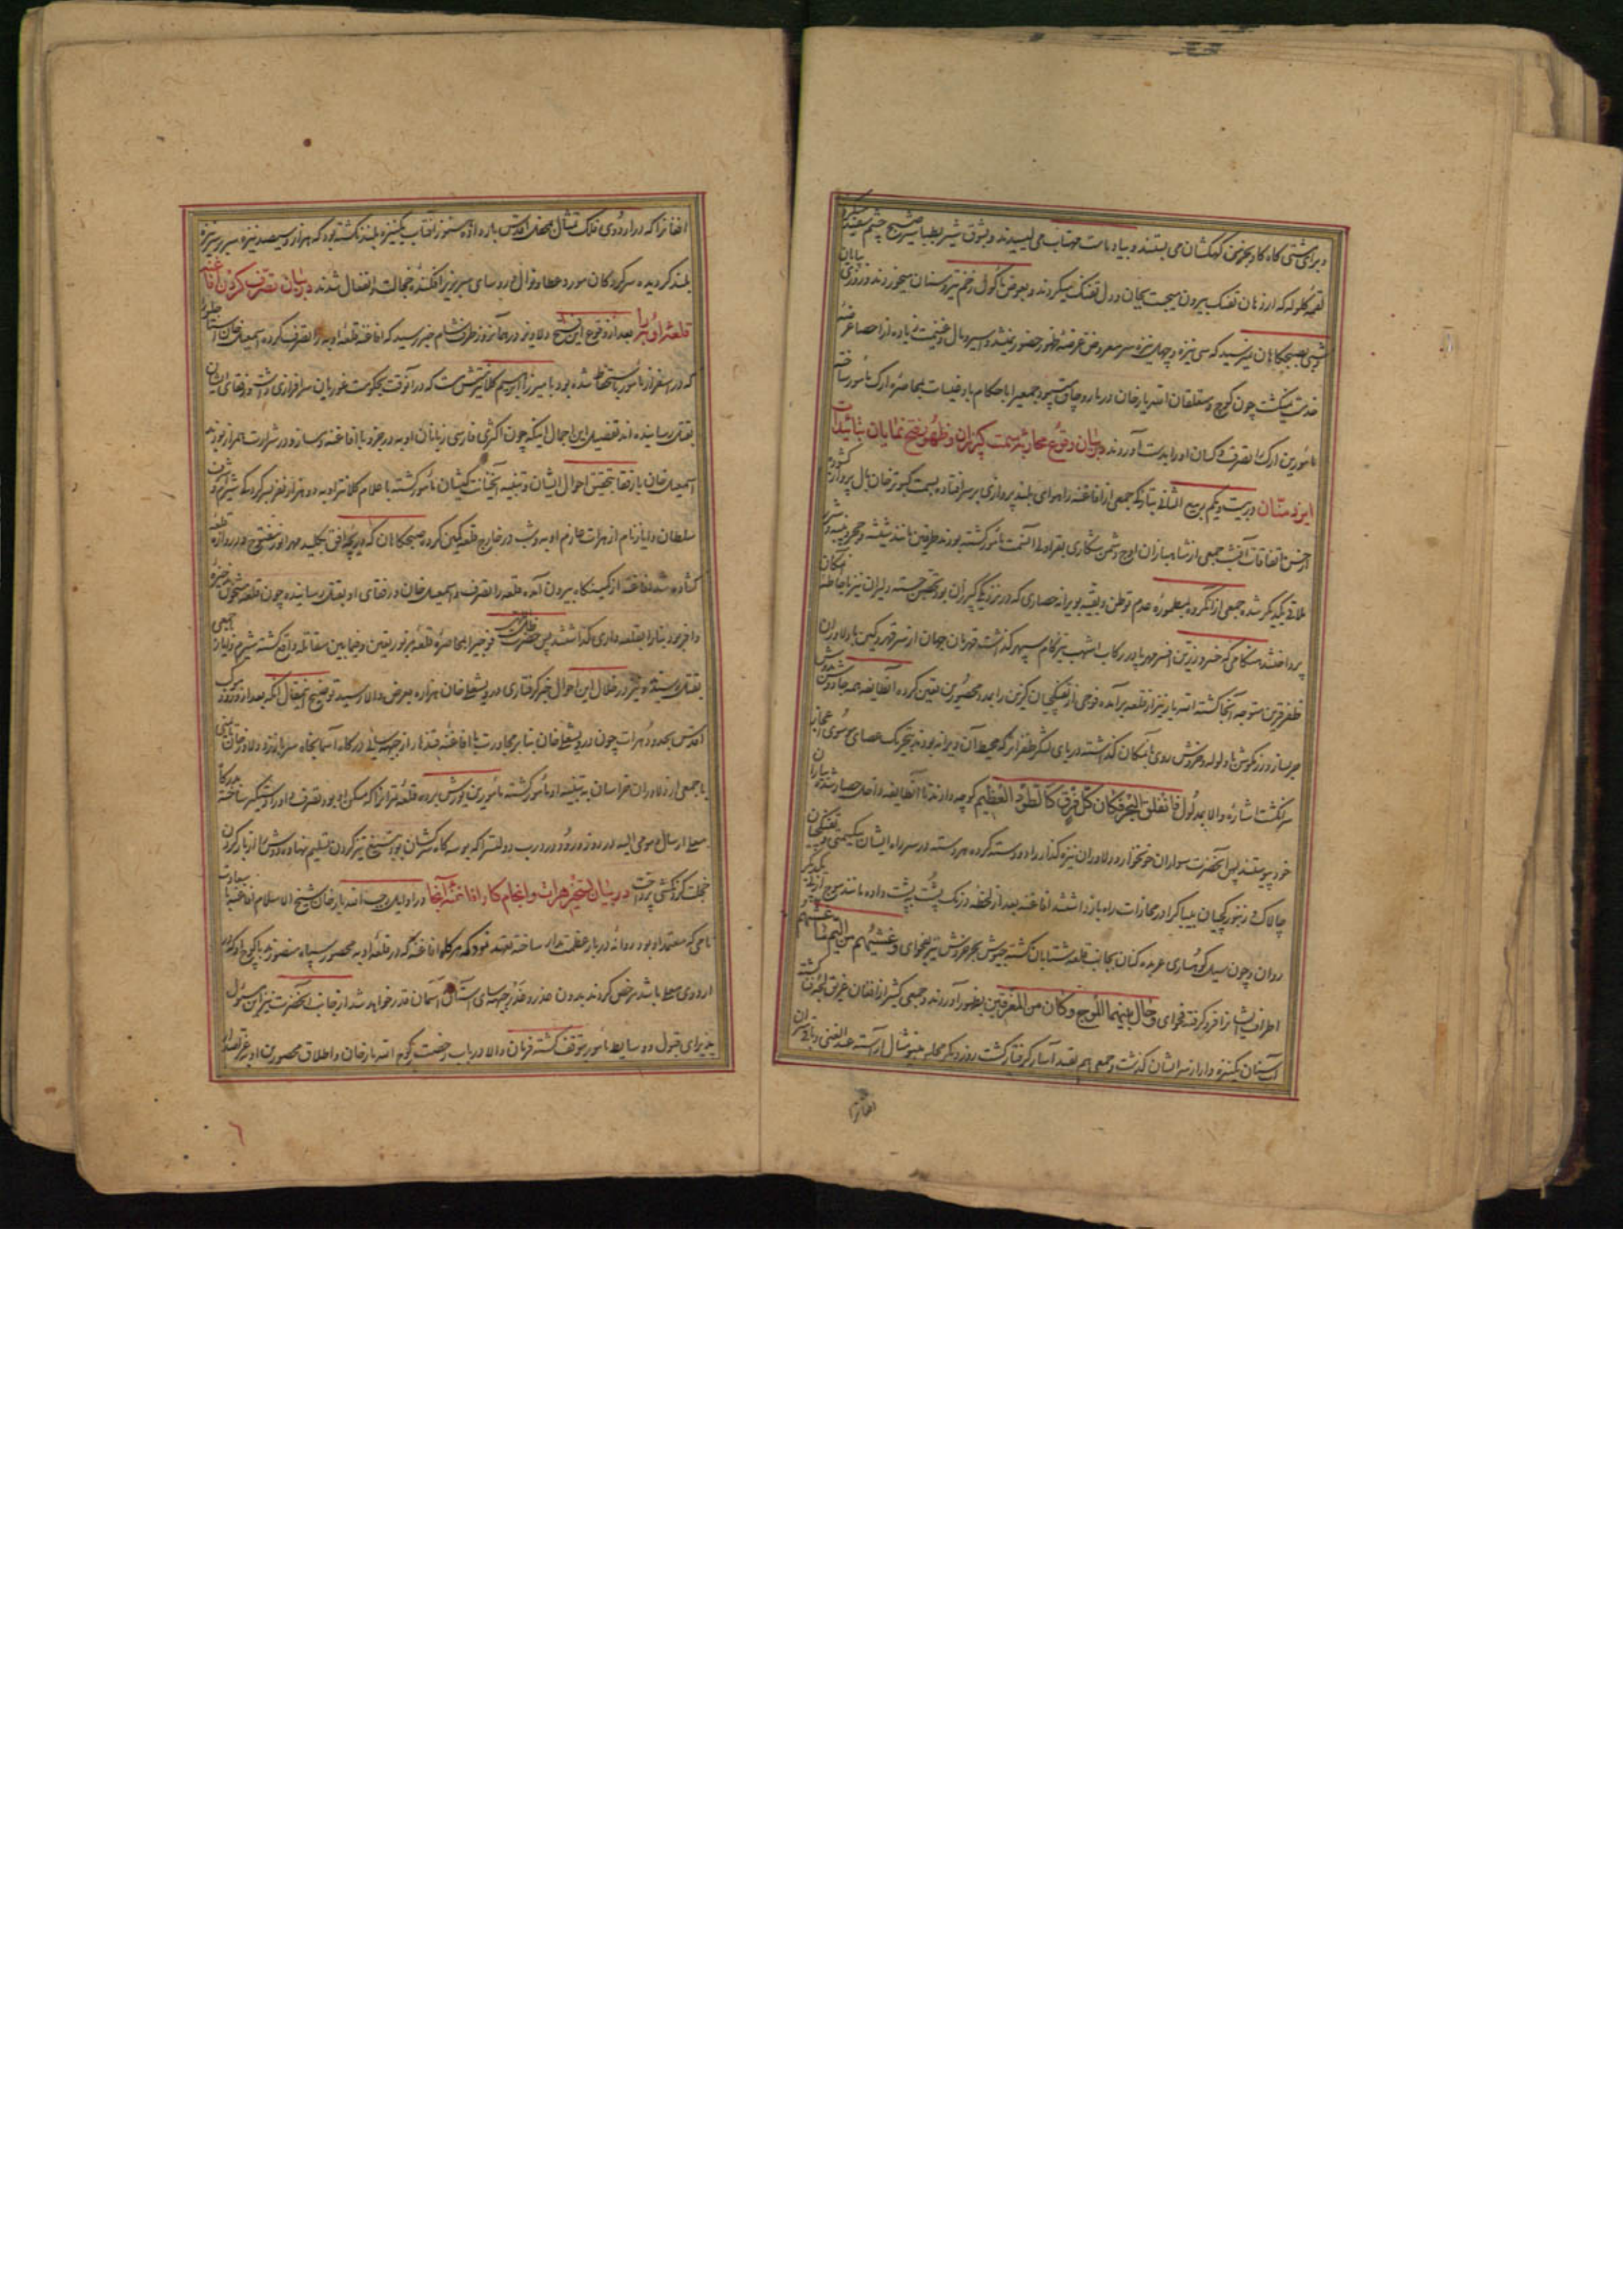 و برای مشتی کاه کاو بخرمن کهکشان می بستند و بیاد بات مهتاب می لیسیدند و بشوق شیر بطباشیر صبح چشم سفید میکردند
لقمه گلوله که از دهان تفنک بیرون میجست بجان و دل تفنک میکردند و بعوض ماکول زخم تیر و سنان میخوردند و روزی بپایان
و شبی بصبحگاهان نمیرسید که سی نیزه و چهل نیزه سر معروض عرضهٔ ظهور حضور نمیشد و اسیر و مال و غنیمت زیاده از احصا عرضهٔ
خدمت میکشت چون کوچ و متعلقان الله یار خان در مارو چاق میبود جمعی را با حکام بادغیسات بمحاصره ارک مامور ساخته
مأمورین ارک را تصرف و کسان او را بدست آوردند در بیان وقوع محاربه سمت کبرزان و ظهور فتح نمایان بتائیدات
ایزد منّان در بیست و یکم ربیع الثانی بتازکه جمعی از افاغنه را هوای بلند پروازی بر سر افتاده بسمت کبوتر خان بال پرواز کشودند
از حسن اتفاقات آنشب جمعی از شاهبازان اوج دشمن شکاری بقراولی آنسمت مأمور کشته بودند طرفین مانند شیشه و حجر و پنبه و آذر
ملاقی یکدیگر شده جمعی از آنکروه بمطمورهٔ عدم توطن و بقیه بویرانه حصاری که در نزدیکی کبرزان بود تحصن جسته دلیران نیز باحاطهٔ آنمکان
پرداختند هنکامی که خسرو زرین افسر مهر پا در رکاب اشهب تیزکام سپهر کذاشته قهرمان جهان از سر قهر و کین با دلاوران
ظفر قرین متوجه آنجا کشته الله یار نیز از قلعه برآمده فوجی از تفنکچیان کزین را بمدد محصورین تعیین کرده آنطایفه همه جا دوش بدوش
جزایر انداز و رزمکوشان با ولوله و خروش روی بآنمکان کذاشته دریای لشکر ظفر اثر که محیط آن ویرانه بودند بتحریک عصای موسوی اعجاز
سر انکشت اشارهٔ والا بمدلول فانفلق البحر فکان کلّ فرق کالطود العظیم کوچه دادند تا آنطایفه داخل حصار شده بیاران
خود پیوستند پس آنحضرت سواران خونخوار و دلاوران نیزه کذار را دو دسته کرده هر دسته در سر راه ایشان بیکسمت و تفنکچیان
چالاک و زنبورکچیان بیباکرا در محاذات راه باز داشتند افاغنه بعد از لحظه درنک پُشت بپشت داده مانند موج از پی یکدیگر
روان و چون سیل کوهساری عربده کنان بجانب قلعه شتابان کشته جیوش بحر خروش نیز بفحوای و غشیهم من الیمّ ما غشیهم
اطراف ایشانرا فرو کرفته فحوای و حال بینهما الموج و کان من المغرقین بظهور آوردند و جمعی کثیر از افغان غریق لجهٔ فنا کشته
آب سنان یکنیزه وار از سر ایشان کذشت و جمعی هم بقید آسار کرفتار کشت روز دیکر محله مینو مثال آراسته عبدالغنی و باقی سران
افغانرا
افغانرا که در اردوی فلک تمثال بودند بمحفل اقدس بار داده هنوز آفتاب یکنیزه بلند نکشته بود که هزار و سیصد نیزه سر بر سر نیزه
بلند کردیده سرکردکان مورد عطا و نوال و روسای سر بزیر افکنده خجالت و انفعال شدند در بیان تصرف کردن افاغنه
قلعهٔ اوبه را بعد از وقوع این فتح دلاویز در همانروز طرف شام خبر رسید که افاغنه قلعهٔ اوبه را تصرف کرده اسمعیل خان استاجلو را
که در اسفزار مأمور بآنحفاظ شده بود با میرزا ابراهیم کلانترش که در آنوقت بحکومت غوریان سرافرازی داشت و رفقای ایشان
بقتل رسانیده اند تفصیل این اجمال اینکه چون اکثری فارسی زبانان اوبه در جزو با افاغنه دمساز و در شرارت همراز بودند
اسمعیل خان با رفقا بتحقیق احوال ایشان و تنبیه آنخیانت کیشان مأمور کشته باعلام کلانتر اوبه دو هزار نفر بسرکردکی شیر مردم
سلطان و ایاز نام از هرات عازم اوبه و شب در خارج قلعه کمین کرده صبحکاهان که دریچهٔ افق بکلید مهر انور مفتوح و دروازهٔ قلعه
کشاده شد افاغنه از کمینکاه بیرون آمده قلعه را تصرف و اسمعیل خان و رفقای او بقتل رسانیده چون قلعه مشحون بذخیره
و آذوقه بود بنا را بقلعه داری کذاشتند پس حضرت ظل اللهی فوجی را بمحاصره قلعه مزبور تعیین و فیما بین مقاتله واقع کشته شیرم و ایاز با جمعی
بقتل رسیدند و نیز در خلال این احوال خبر کرفتاری درویش علی خان هزاره بعرض والا رسید توضیح آنمقال آنکه بعد از ورود موکب
اقدس بحدود هرات چون درویش علی خان بنا بر مجاورت با افاغنه قندهار از جبهه سایی درکاه آسمانجاه سر باز زد دلاور خان تایمنی
با جمعی از دلاوران خراسان به تنبیه او مأمور کشته مأمورین یورش برده قلعه قرارا که مسکن او بود تصرف و او را دستکیر ساخته بدرکاه
معلی ارسال و مومی الیه در روز ورود در درب دولتسرا که بوسه کاه سرکشان بود بتیغ تیز کردن تسلیم نهاده دوش را از بار کردن
خجلت کردنکشی پرداخت در بیان تسخیر هرات و انجام کار افاغنهٔ آنجا در اوایل رجب الله یار خان شیخ الاسلام افاغنه را با سعادت
نامی که معتمد او بود روانه دربار عظمت مدار ساخته متعهد نمود که هرکاه افاغنه که در قلعهٔ اوبه محصور سپاه منصورند با کوچ او که در
اردوی معلی باشد مرخص کردند بدون عذر و تعذر جبهه سای آستان آسمان قدر خواهد شد از جانب آنحضرت نیز این مسئول
پذیرای قبول و وسایط مأمور بتوقف کشته فرمان والا در باب رخصت کوچ الله یار خان و اطلاق محصورین اوبه عز نفاذ
٦